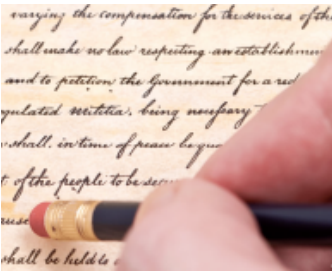 varying the compensation for the services of the
shall make no law respecting an establishmen
and to petition the Government for a red
gulated militia, being necessary
shall, in time of peace be qua
of the people to be secu
ause
shall be held to a